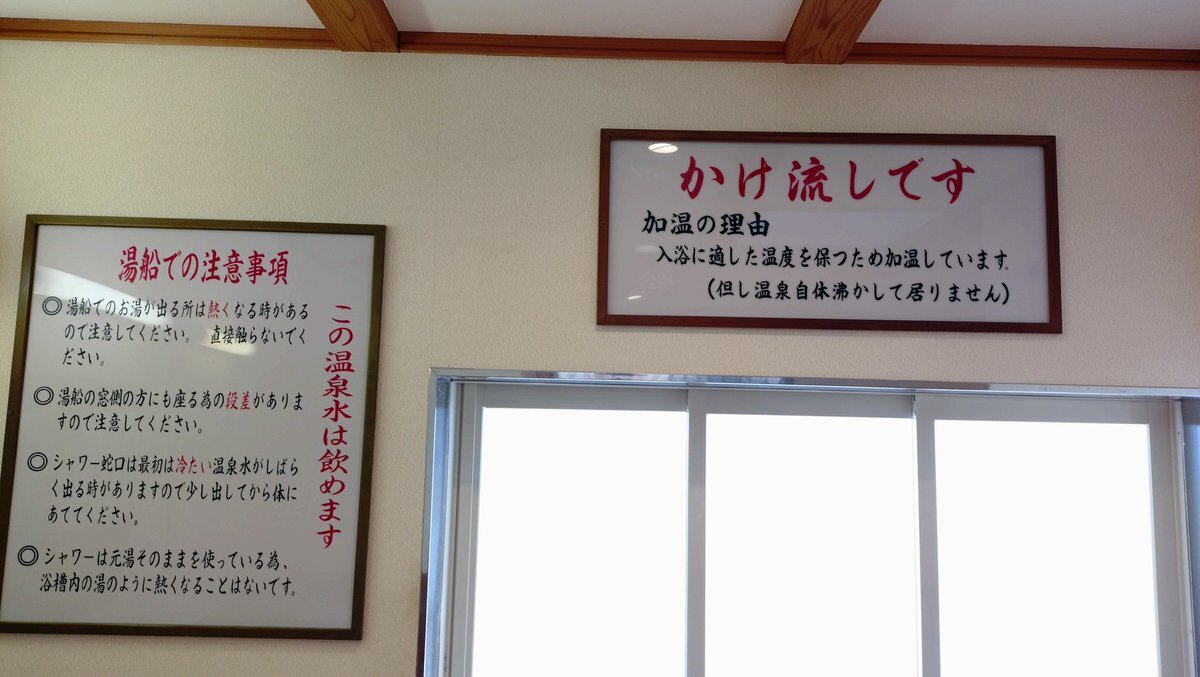 湯船での注意事項
◎湯船でのお湯が出る所は熱くなる時がある
ので注意してください。　直接触らないでく
ださい。
◎湯船の窓側の方にも座る為の段差がありま
すので注意してください。
◎シャワー蛇口は最初は冷たい温泉水がしばら
く出る時がありますので少し出してから体に
あててください。
◎シャワーは元湯そのままを使っている為、
浴槽内の湯のように熱くなることはないです。
この温泉水は飲めます
かけ流しです
加温の理由
入浴に適した温度を保つため加温しています。
(但し温泉自体沸かして居りません)